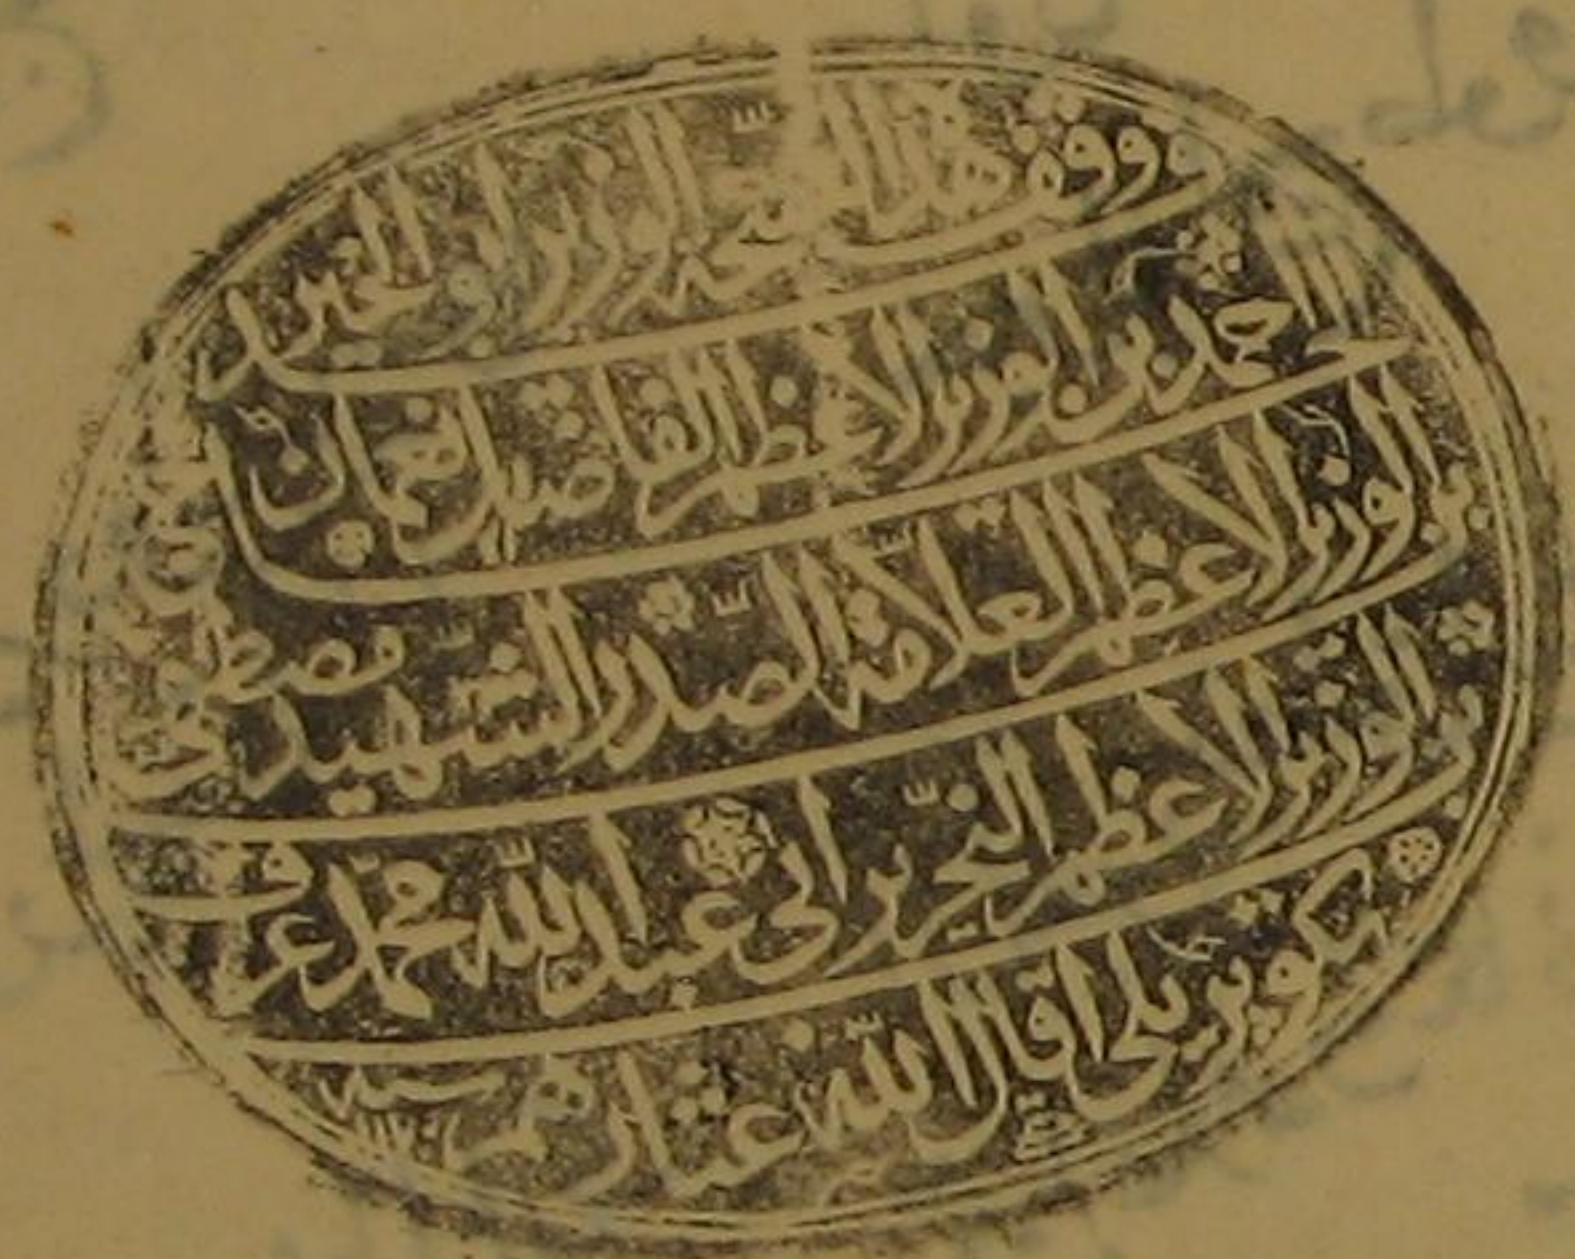 وقف هذا النسخة الوزير ابو الخير
الحاج احمد بن الوزير الاعظم الفاضل نعمان
بن الوزير الاعظم العلامة الصدر الشهيد مصطفى
بن الوزير الاعظم النحرير ابى عبد الله محمد عرف
بكوپريلى اقال الله عثارهم سنة